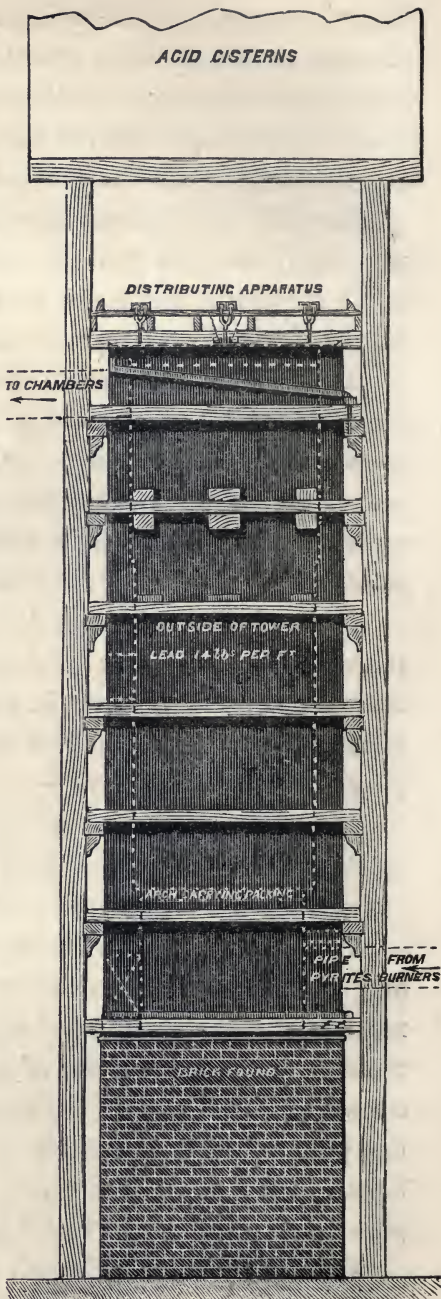 ACID CISTERNS
DISTRIBUTING APPARATUS
TO CHAMBERS
OUTSIDE OF TOWER
LEAD 14 lbs PER FT
ARCH CARRYING PACKING
PIPE FROM
PYRITES BURNERS
BRICK FOUND